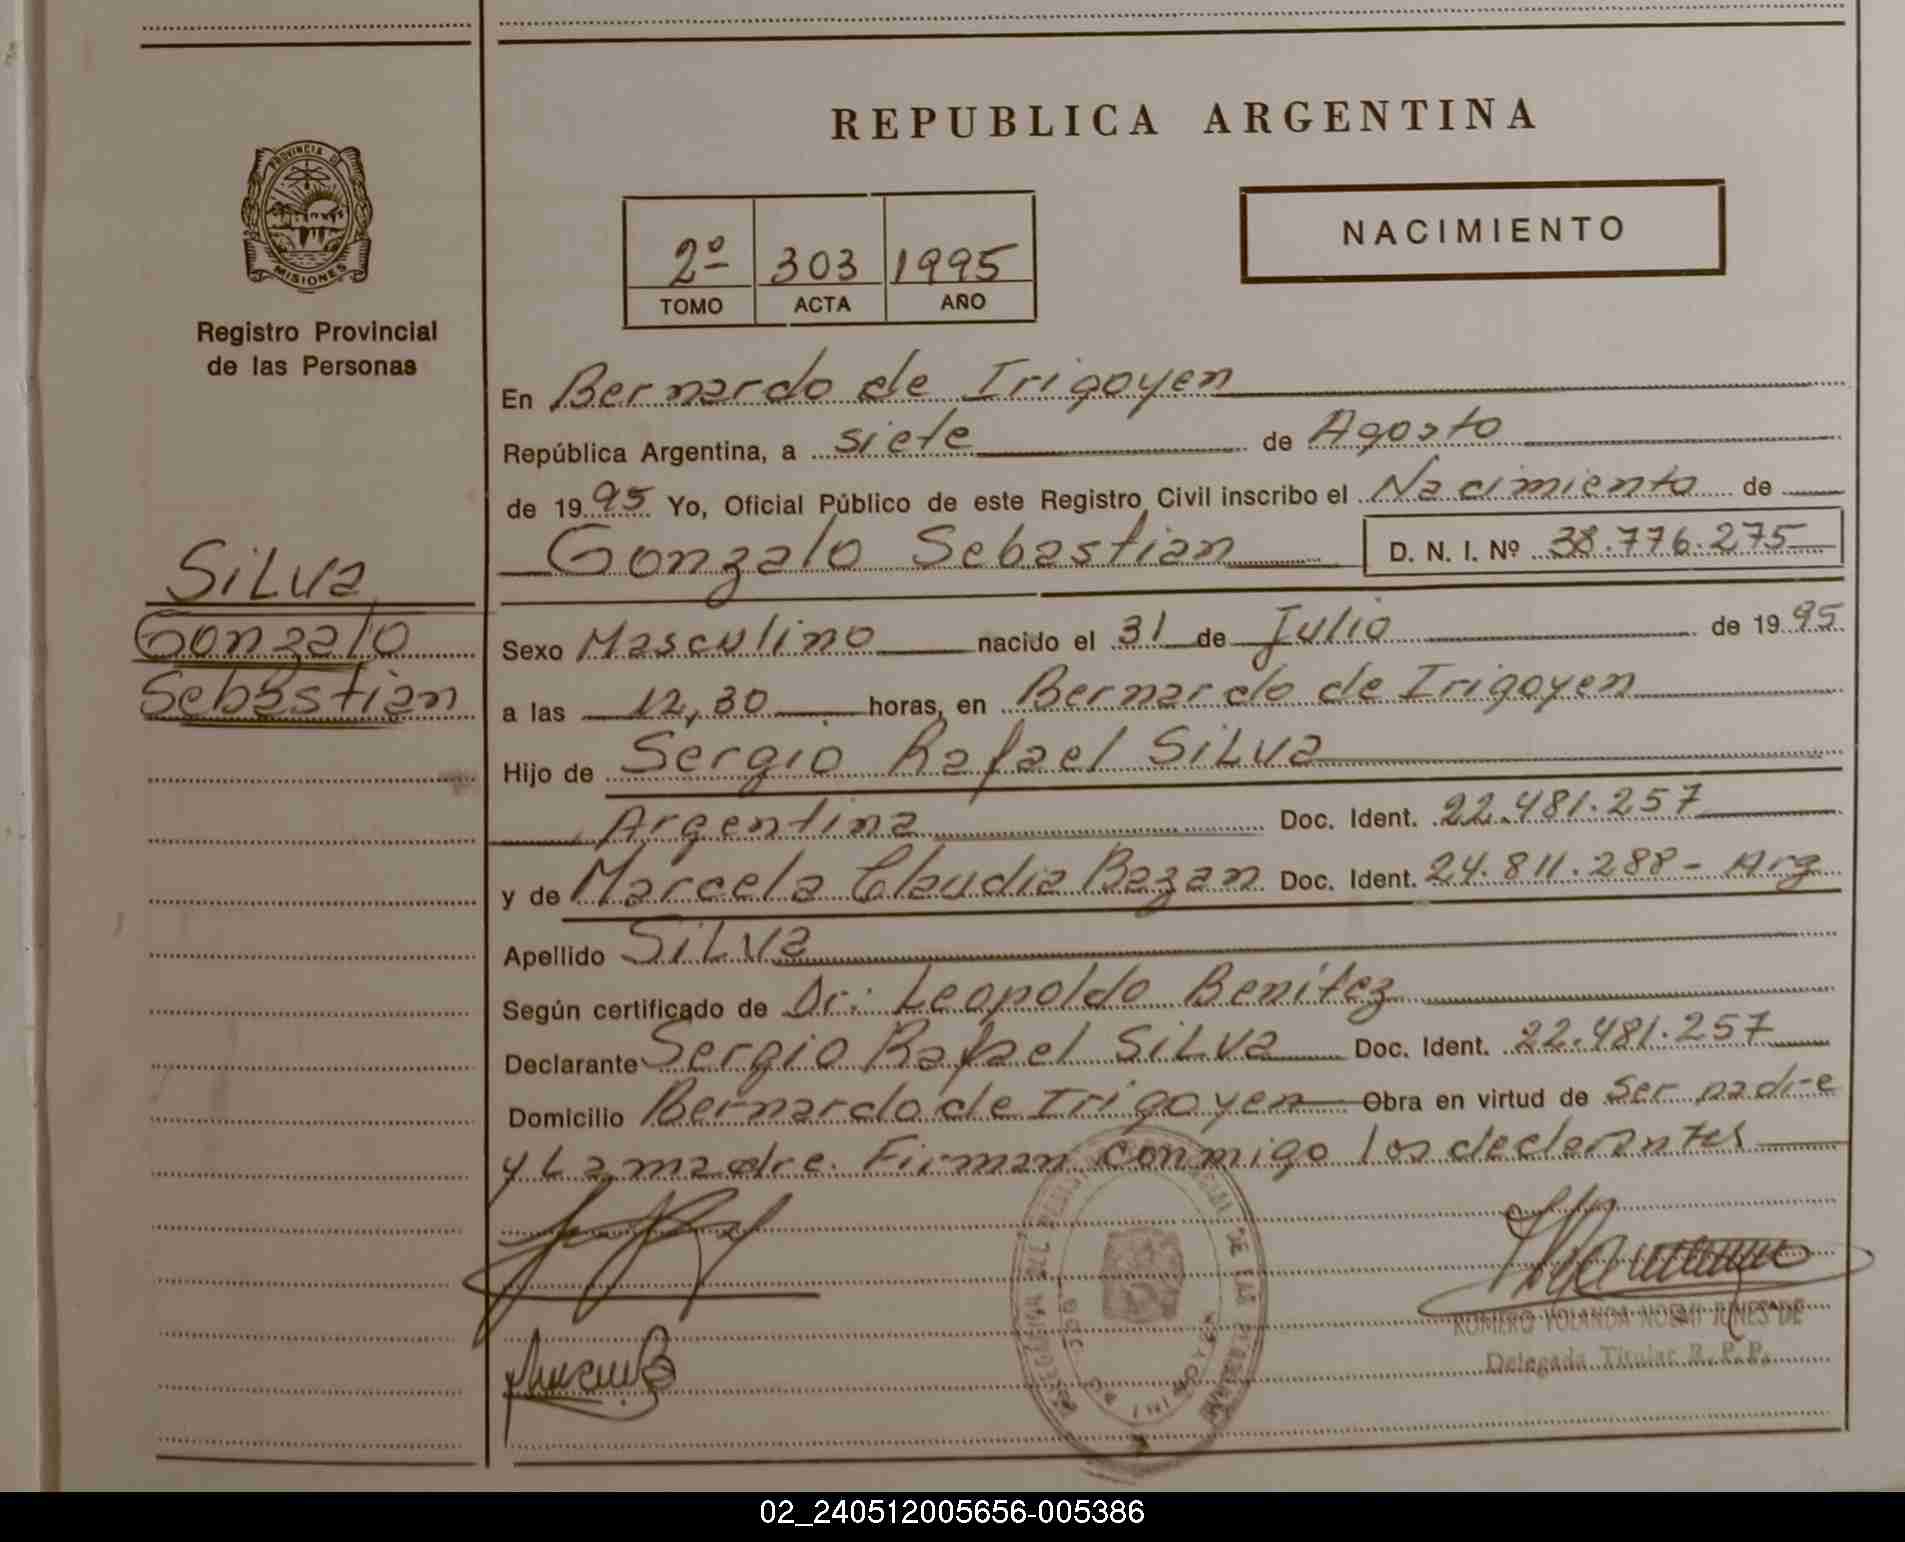 REPUBLICA ARGENTINA
PROVINCIA DE
MISIONES
Registro Provincial
de las Personas
NACIMIENTO
2º 303 1995
TOMO ACTA AÑO
En Bernardo de Irigoyen
República Argentina, a siete de Agosto
de 1995 Yo, Oficial Público de este Registro Civil inscribo el Nacimiento de
Gonzalo Sebastian D. N. I. Nº 38.776.275
Silva
Gonzalo
Sebastian
Sexo Masculino nacido el 31 de Julio de 1995
a las 12,30 horas, en Bernardo de Irigoyen
Hijo de Sergio Rafael Silva
Argentina Doc. Ident. 22.481.257
y de Marcela Claudia Bazan Doc. Ident. 24.811.288 - Arg
Apellido Silva
Según certificado de Dr: Leopoldo Benítez
Declarante Sergio Rafael Silva Doc. Ident. 22.481.257
Domicilio Bernardo de Irigoyen Obra en virtud de Ser padre
y La madre. Firman conmigo los declarantes
ROMERO YOLANDA NOEMI JUNES DE
Delegada Titular R. P. P.
02_240512005656-005386